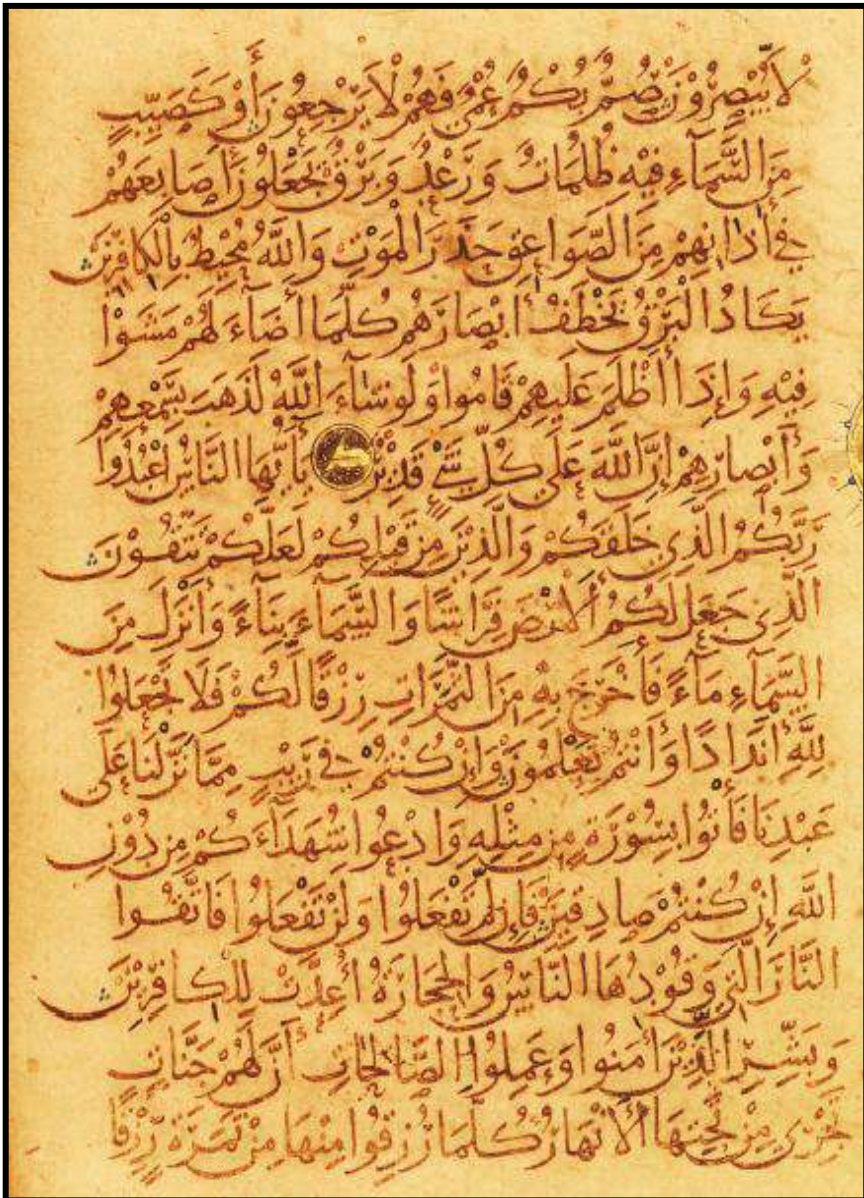 لَا يُبْصِرُوْنَ صُمٌّ بُكْمٌ عُمْيٌ فَهُمْ لَا يَرْجِعُونَ أَوْ كَصَيِّبٍ
مِنَ السَّمَآءِ فِيْهِ ظُلُمَاتٌ وَرَعْدٌ وَبَرْقٌ يَجْعَلُوْنَ أَصَابِعَهُمْ
فِي أٰذَانِهِمْ مِنَ الصَّوَاعِقِ حَذَرَ الْمَوْتِ وَاللَّهُ مُحِيْطٌ بِالْكَافِرِيْنَ
يَكَادُ الْبَرْقُ يَخْطَفُ أَبْصَارَهُمْ كُلَّمَا أَضَآءَ لَهُمْ مَشَوْا
فِيْهِ وَإِذَا أَظْلَمَ عَلَيْهِمْ قَامُوا وَلَوْ شَآءَ اللَّهُ لَذَهَبَ بِسَمْعِهِمْ
وَأَبْصَارِهِمْ إِنَّ اللَّهَ عَلَى كُلِّ شَيْءٍ قَدِيْرٌ يَآأَيُّهَا النَّاسُ اعْبُدُوا
رَبَّكُمُ الَّذِي خَلَقَكُمْ وَالَّذِيْنَ مِنْ قَبْلِكُمْ لَعَلَّكُمْ تَتَّقُوْنَ
الَّذِي جَعَلَ لَكُمُ الْأَرْضَ فِرَاشًا وَالسَّمَآءَ بِنَآءً وَأَنْزَلَ مِنَ
السَّمَآءِ مَآءً فَأَخْرَجَ بِهِ مِنَ الثَّمَرَاتِ رِزْقًا لَّكُمْ فَلَا تَجْعَلُوا
لِلَّهِ أَنْدَادًا وَأَنْتُمْ تَعْلَمُوْنَ وَإِنْ كُنْتُمْ فِي رَيْبٍ مِمَّا نَزَّلْنَا عَلَى
عَبْدِنَا فَأْتُوا بِسُوْرَةٍ مِنْ مِثْلِهِ وَادْعُوا شُهَدَآءَكُمْ مِنْ دُوْنِ
اللَّهِ إِنْ كُنْتُمْ صَادِقِيْنَ فَإِنْ لَّمْ تَفْعَلُوا وَلَنْ تَفْعَلُوا فَاتَّقُوا
النَّارَ الَّتِي وَقُوْدُهَا النَّاسُ وَالْحِجَارَةُ أُعِدَّتْ لِلْكَافِرِيْنَ
وَبَشِّرِ الَّذِيْنَ أٰمَنُوا وَعَمِلُوا الصَّالِحَاتِ أَنَّ لَهُمْ جَنَّاتٍ
تَجْرِي مِنْ تَحْتِهَا الْأَنْهَارُ كُلَّمَا رُزِقُوا مِنْهَا مِنْ ثَمَرَةٍ رِزْقًا